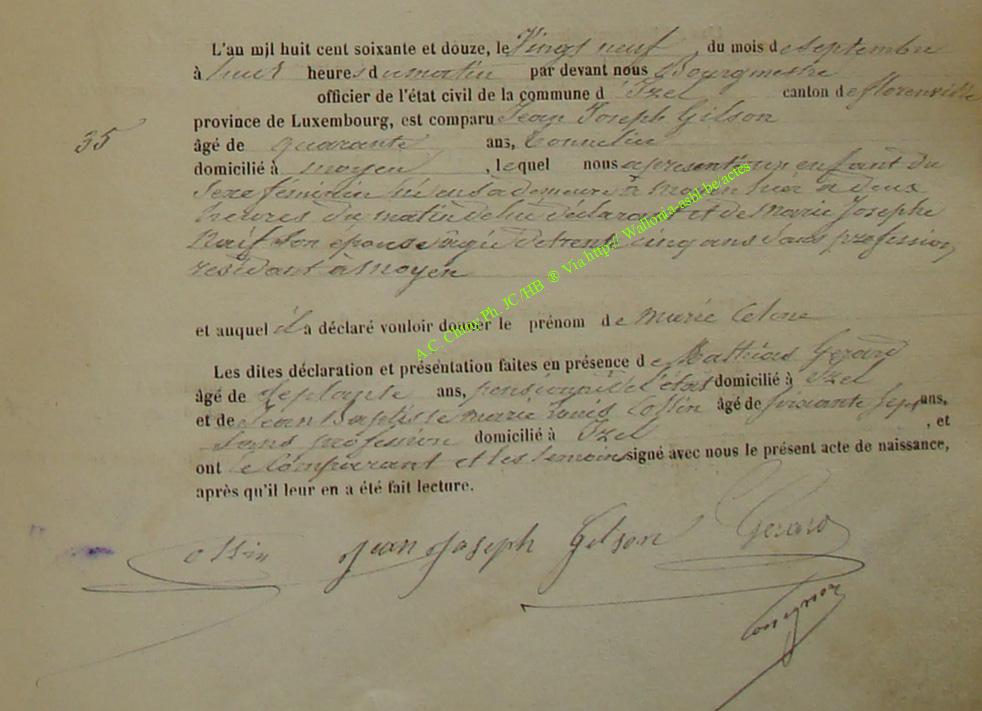 L'an mil huit cent soixante et douze, le Vingt neuf du mois de septembre
à huit heures du matin par devant nous Bourgmestre
officier de l'état civil de la commune d'Izel canton de florenville
province de Luxembourg, est comparu Jean Joseph Gilson
35
âgé de quarante ans, Tonnelier
domicilié à moyen, lequel nous a présenté un enfant du
Sexe féminin né en sa demeure à moyen hier à deux
heures du matin de lui déclarant et de Marie Josephe
Naif son épouse agée de trente cinq ans sans profession
résidant à moyen
et auquel il a déclaré vouloir donner le prénom de Marie Celine
Les dites déclaration et présentation faites en présence de Mathias Gerard
âgé de septante ans, pensionné de l'état domicilié à Izel
et de Jean Baptisse marie Louis Collin âgé de soixante sept ans,
sans profession domicilié à Izel, et
ont le Comparant et les temoins signé avec nous le présent acte de naissance,
après qu'il leur en a été fait lecture.
Jean Joseph Gilson Gerard
A.C. Chiny Ph. JC/HB ® Via http:// Wallonia-asbl.be/actes